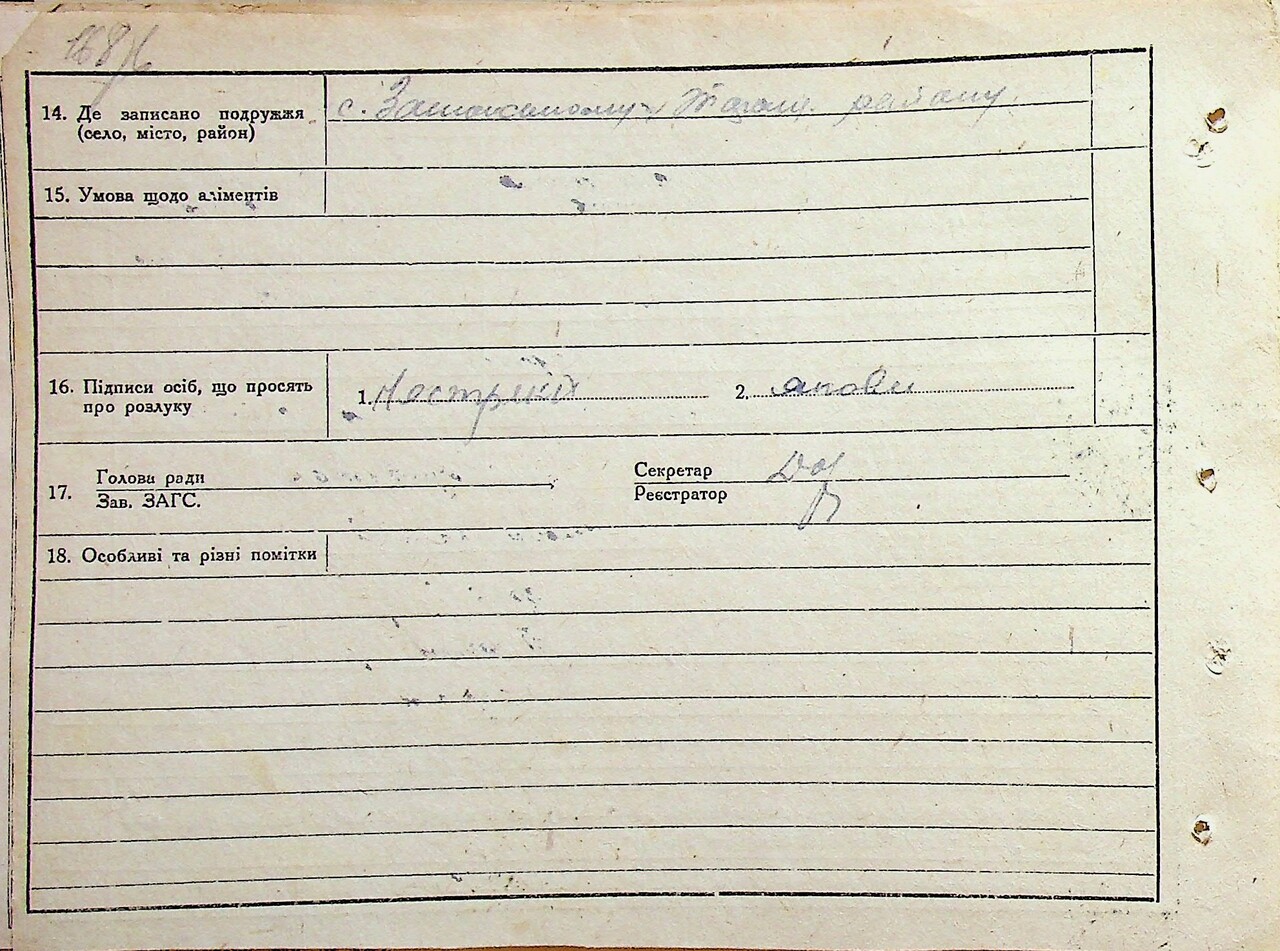 14. Де записано подружжя
(село, місто, район)
с. району.
15. Умова щодо аліментів
16. Підписи осіб, що просять
про розлуку
1.
2.
17.
Голова ради
Зав. ЗАГС.
Секретар
Реєстратор
18. Особливі та різні помітки